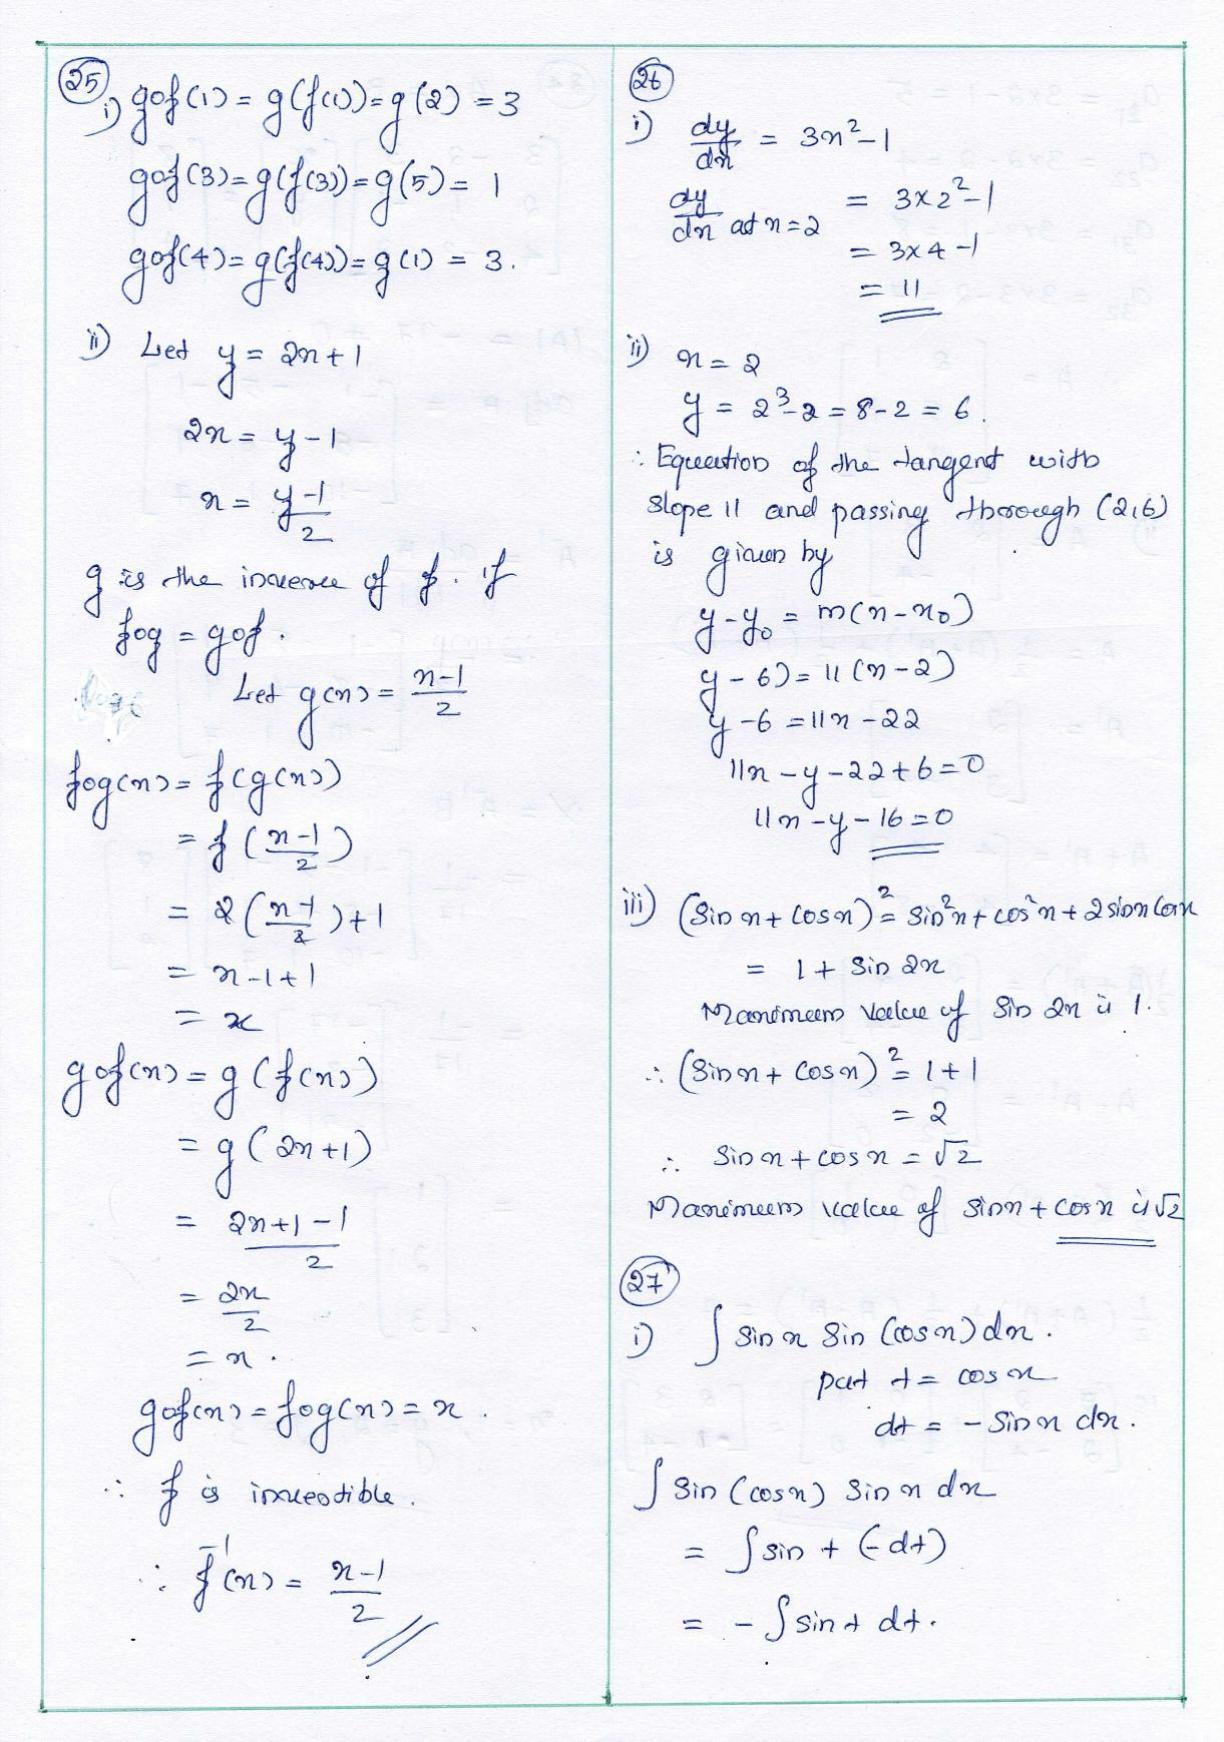 25
i) gof(1) = g(f(1)) = g(2) = 3
gof(3) = g(f(3)) = g(5) = 1
gof(4) = g(f(4)) = g(1) = 3.
ii) Let y = 2x+1
2x = y-1
x = (y-1)/2
g is the inverse of f. if
fog = gof.
Let g(x) = (x-1)/2
fog(x) = f(g(x))
= f((x-1)/2)
= 2((x-1)/2)+1
= x-1+1
= x
gof(x) = g(f(x))
= g(2x+1)
= (2x+1-1)/2
= 2x/2
= x.
gof(x) = fog(x) = x.
∴ f is invertible.
∴ f⁻¹(x) = (x-1)/2
26
i) dy/dx = 3x²-1
dy/dx at x=2 = 3×2²-1
= 3×4-1
= 11
ii) x = 2
y = 2³-2 = 8-2 = 6.
∴ Equation of the tangent with
slope 11 and passing through (2,6)
is given by
y-y₀ = m(x-x₀)
y-6) = 11(x-2)
y-6 = 11x-22
11x-y-22+6=0
11x-y-16=0
iii) (sin x + cos x)² = sin²x + cos²x + 2 sin x cos x
= 1 + sin 2x
Maximum value of sin 2x is 1.
∴ (sin x + cos x)² = 1+1
= 2
∴ sin x + cos x = √2
Maximum value of sin x + cos x is √2
27
i) ∫ sin x sin (cos x) dx.
put t = cos x
dt = - sin x dx.
∫ sin (cos x) sin x dx
= ∫ sin t (-dt)
= - ∫ sin t dt.